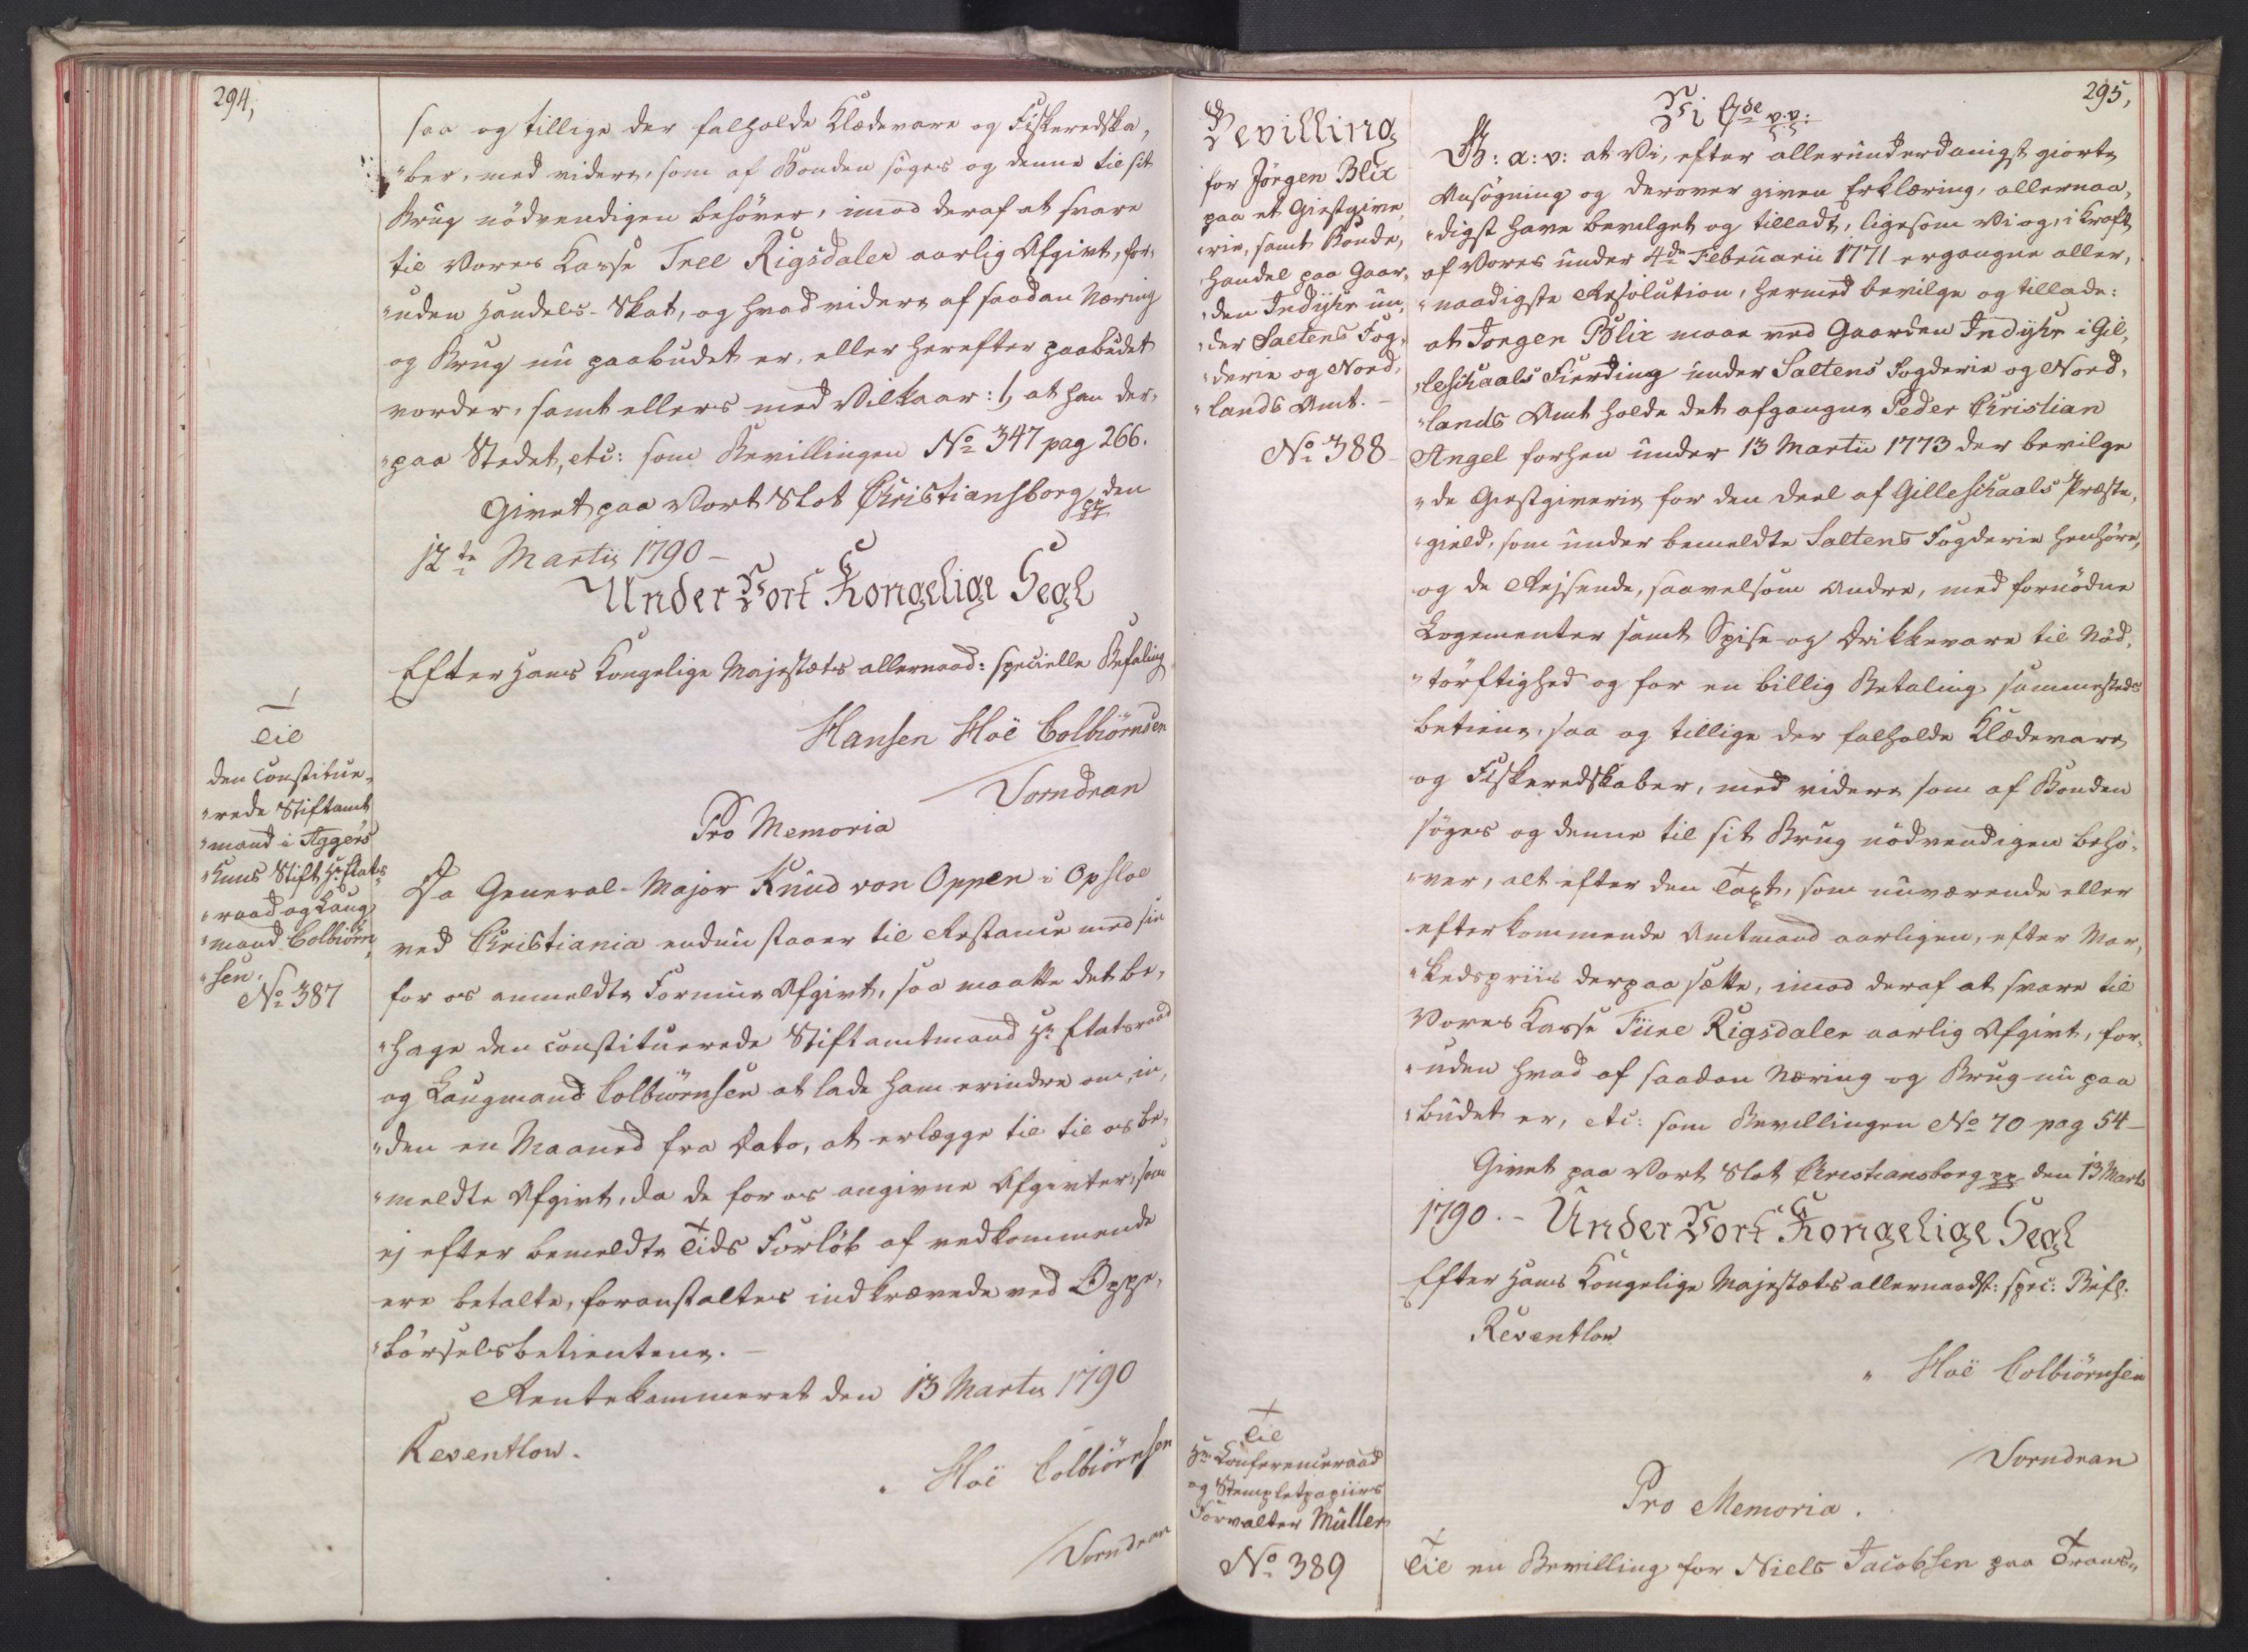 294,
saa og tillige der falholde Klædevare og Fiskeredska„
„ber, med videre, som af Bonden söges og denne til sit
Brug nödvendigen behöver, imod deraf at svare
til Vores Casse Tree Rigsdaler aarlig Afgivt, for„
„uden Handels-Skat, og hvad videre af saadan Næring
og Brug nu paabudet er, eller herefter paabudet
vorder, samt ellers med Vilkaar: 1, at han der„
„paa Stedet, etc: som Bevillingen No 347 pag 266.
Givet paa Vort Slot Christiansborg pp den
12te Martii 1790 –
Under Vort Kongelige Segl
Efter Hans Kongelige Majestæts allernaad: specielle Befaling
Hansen Hoë Colbiørnsen
Vorndran
Til
den Constitue„
„rede Stiftamt
„mand i Aggers
„huus Stift Hr. Etats„
„raad og Laug
„mand Colbiörn„
„sen.
No 387
Pro Memoria
Da General-Major Knud von Oppen i Opsloe
ved Christiania endnu staaer til Restance med sin
for os anmeldte Formue Afgivt, saa maatte det be„
„hage den constituerede Stiftamtmand Hr Etatsraad
og Laugmand Colbiörnsen at lade ham erindre om, in„
„den en Maaned fra Dato, at erlægge til til os be„
„meldte Afgivt, da de for os angivne Afgivter, som
ej efter bemeldte Tids Forlöb af vedkommende
ere betalte, foranstaltes indkrævede ved Oppe„
„börselsbetientene. –
Rentekammeret den 13 Martii 1790
Reventlow.
„ Hoë Colbiörnsen
Vorndran
295,
Bevilling
for Jörgen Blix
paa et Giestgive„
„rie, samt Bonde„
„handel paa Gaar„
„den Indyhr un„
„der Saltens Fog„
„derie og Nord„
„lands Amt. –
No 388
Vi C7de v.v:
G: a: v: at Vi, efter allerunderdanigst giorte
Ansögning og derover given Erklæring, allernaa„
„digst have bevilget og tilladt, ligesom Vi og, i Kraft
af Vores under 4de Februarii 1771 ergangne aller„
„naadigste Resolution, hermed bevilge og tillade:
at Jorgen Blix maae ved Gaarden Indyhr i Gil„
„leschaals Fierding under Saltens Fogderie og Nord„
„lands Amt holde det afgangne Peder Christian
Angel forhen under 13 Martii 1773 der bevilge
„de Giestgiverie for den Deel af Gilleschaals Præste„
„gield, som under bemeldte Saltens Fogderie henhöre,
og de Rejsende, saavelsom Andre, med fornödne
Logementer samt Spise- og Drikkevare til Nöd„
„törftighed og for en billig Betaling sammesteds
betiene, saa og tillige der falholde Klædevare
og Fiskeredskaber, med videre som af Bonden
söges og denne til sit Brug nödvendigen behö„
„ver, alt efter den Taxt, som nuværende eller
efterkommende Amtmand aarligen, efter Mar„
„kedspriis derpaa sætte, imod deraf at svare til
Vores Casse Tiire Rigsdaler aarlig Afgivt, for„
„uden hvad af saadan Næring og Brug nu paa
„budet er, etc: som Bevillingen No 70 pag 54 –
Givet paa Vort Slot Christiansborg pp den 13 Marts
1790. – Under Vort Kongelige Segl
Efter Hans Kongelige Majestæts allernaadst: spec: Befl.
Reventlow
„ Hoë Colbiörnsen
Vorndran
Til
Hr. Conferenceraad
og Stempletpapiirs
Forvalter Müller
No 389
Pro Memoria.
Til en Bevilling for Niels Jacobsen paa Trans„